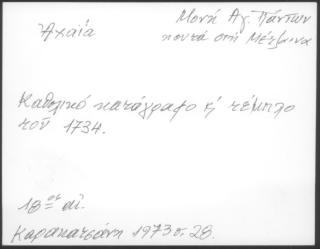 Ἀχαΐα
Μονή Ἁγ. Πάντων
κοντά στή Μέτζαινα
Καθολικό κατάγραφο ἤ τέμπλο
τοῦ 1734.
18ος αἰ.
Καρακατσάνη 1973 σ. 28.